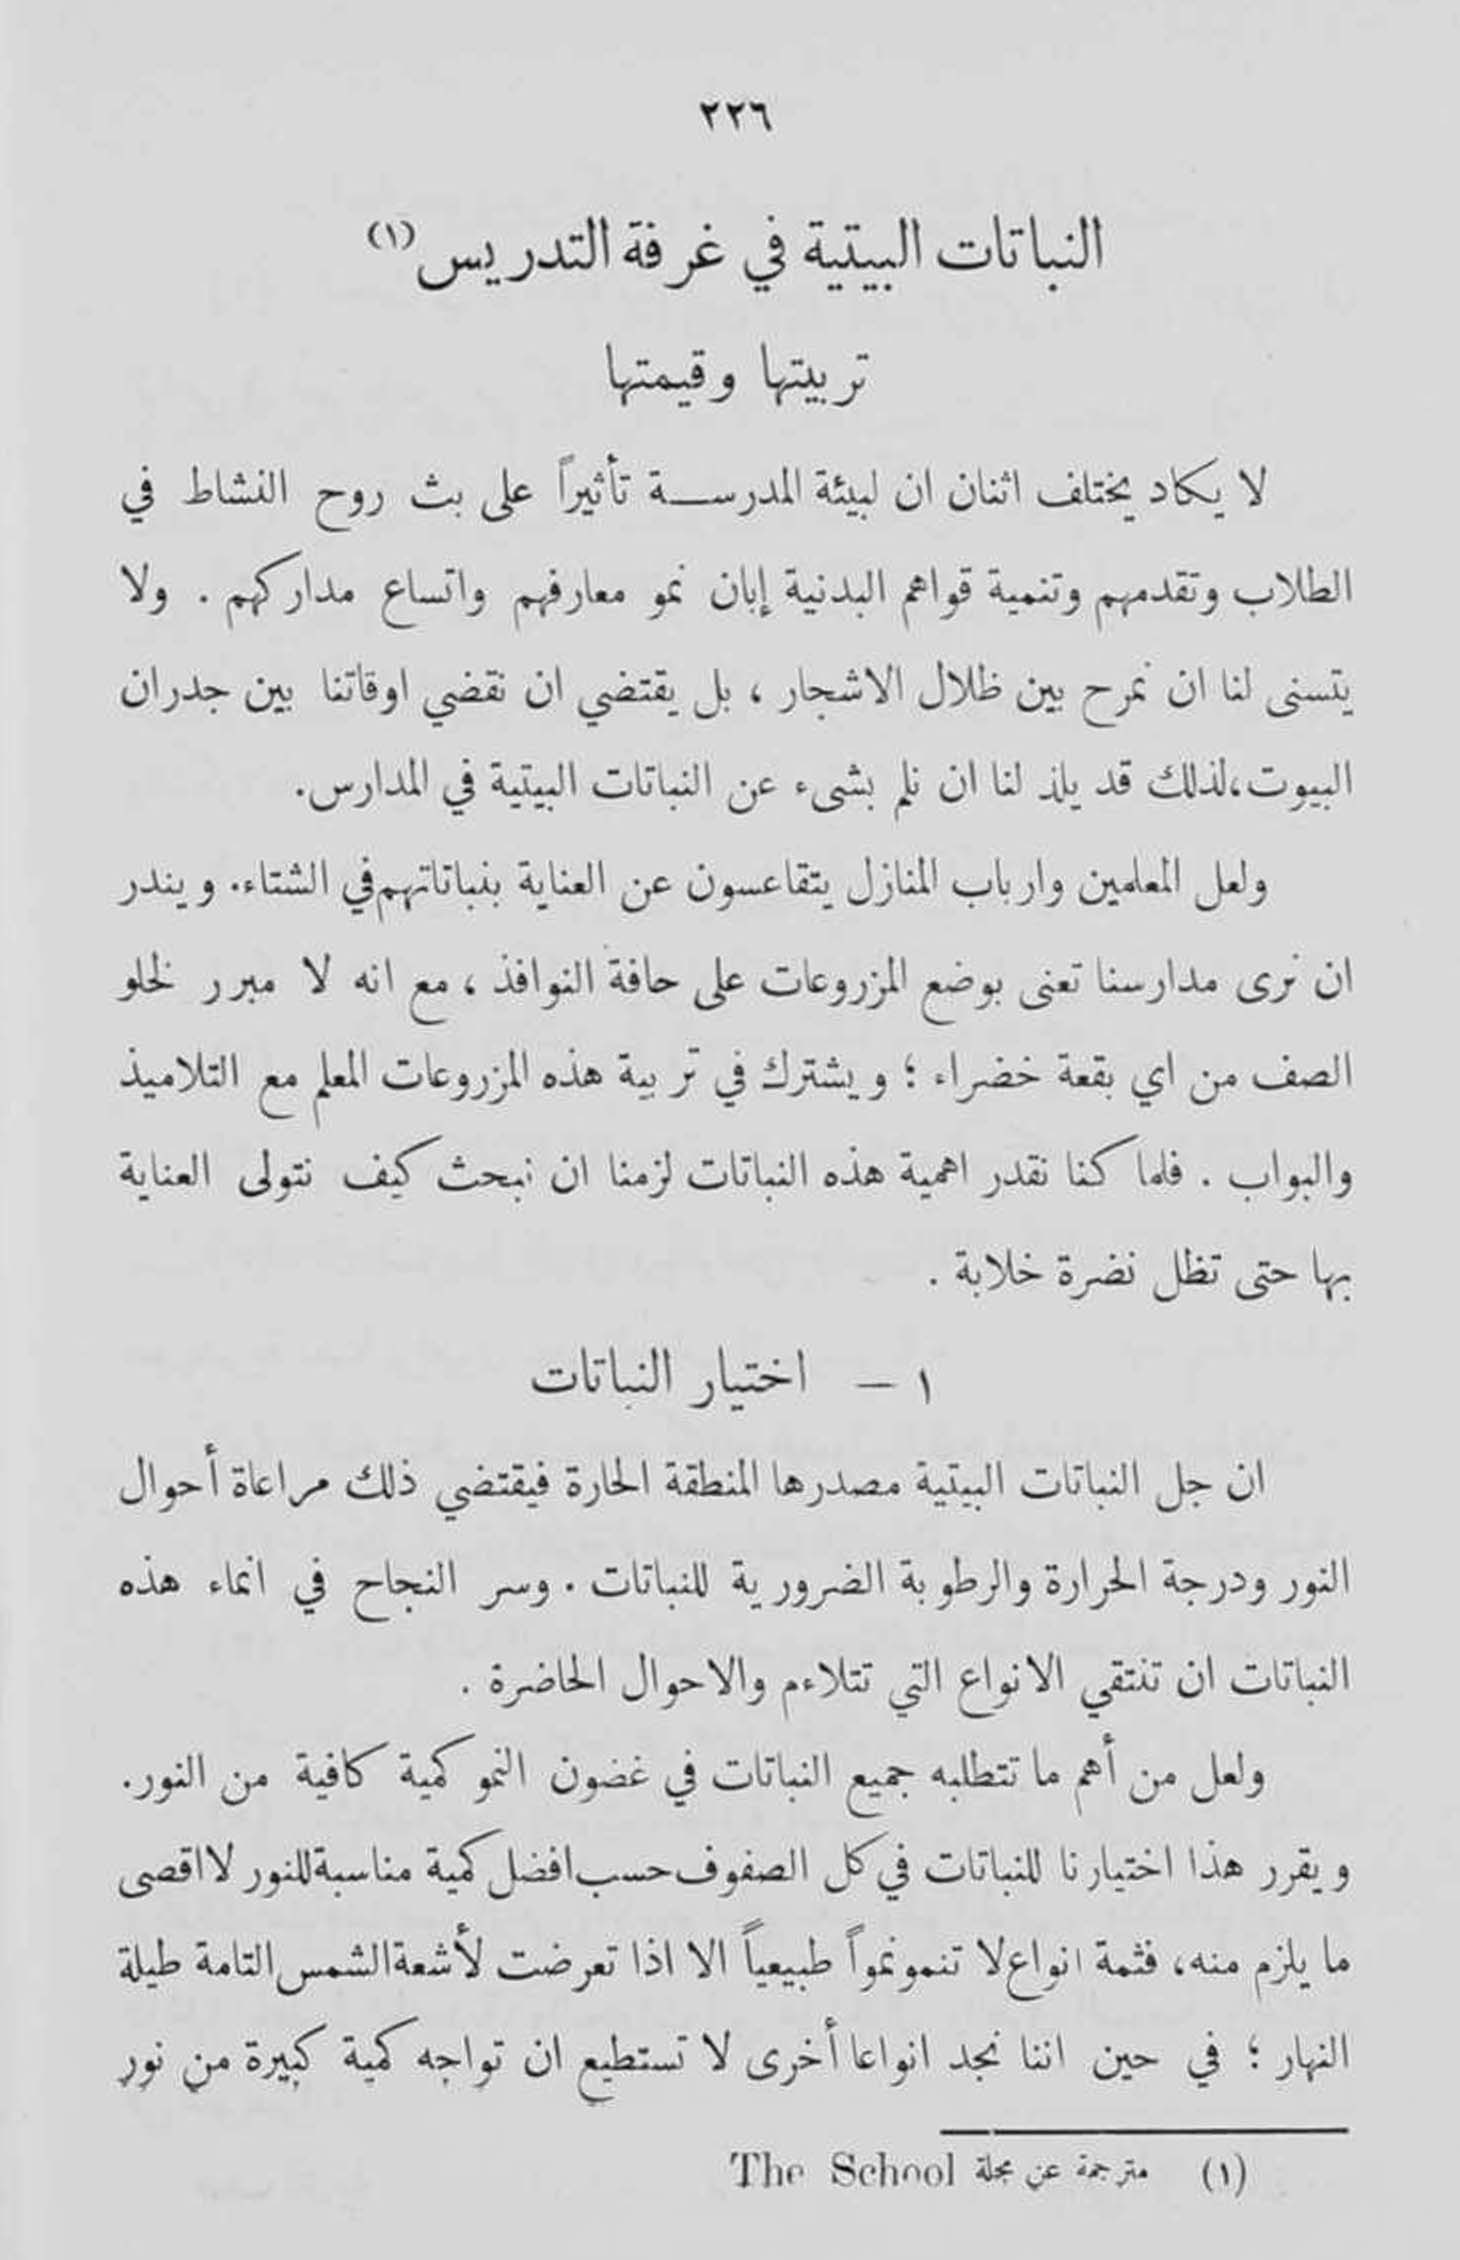 ٢٢٦
النباتات البيتية في غرفة التدريس (١)
تربيتها وقيمتها
لا يكاد يختلف اثنان ان لبيئة المدرسة تأثيراً على بث روح النشاط في
الطلاب وتقدمهم وتنمية قواهم البدنية إبان نمو معارفهم واتساع مداركهم . ولا
يتسنى لنا ان نمرح بين ظلال الاشجار ، بل يقتضي ان نقضي اوقاتنا بين جدران
البيوت،لذلك قد يلذ لنا ان نلم بشيء عن النباتات البيتية في المدارس.
ولعل المعلمين وارباب المنازل يتقاعسون عن العناية بنباتاتهم في الشتاء. ويندر
ان نرى مدارسنا تعنى بوضع المزروعات على حافة النوافذ ، مع انه لا مبرر لخلو
الصف من اي بقعة خضراء ؛ ويشترك في تربية هذه المزروعات المعلم مع التلاميذ
والبواب . فلما كنا نقدر اهمية هذه النباتات لزمنا ان نبحث كيف نتولى العناية
بها حتى تظل نضرة خلابة .
١ – اختيار النباتات
ان جل النباتات البيتية مصدرها المنطقة الحارة فيقتضي ذلك مراعاة أحوال
النور ودرجة الحرارة والرطوبة الضرورية للنباتات . وسر النجاح في انماء هذه
النباتات ان تنتقي الانواع التي تتلاءم والاحوال الحاضرة .
ولعل من أهم ما تتطلبه جميع النباتات في غضون النمو كمية كافية من النور.
ويقرر هذا اختيارنا للنباتات في كل الصفوف حسب افضل كمية مناسبة للنور لا اقصى
ما يلزم منه، فثمة انواع لا تنمو نمواً طبيعياً الا اذا تعرضت لأشعة الشمس التامة طيلة
النهار ؛ في حين اننا نجد انواعا أخرى لا تستطيع ان تواجه كمية كبيرة من نور
(١) مترجمة عن مجلة The School